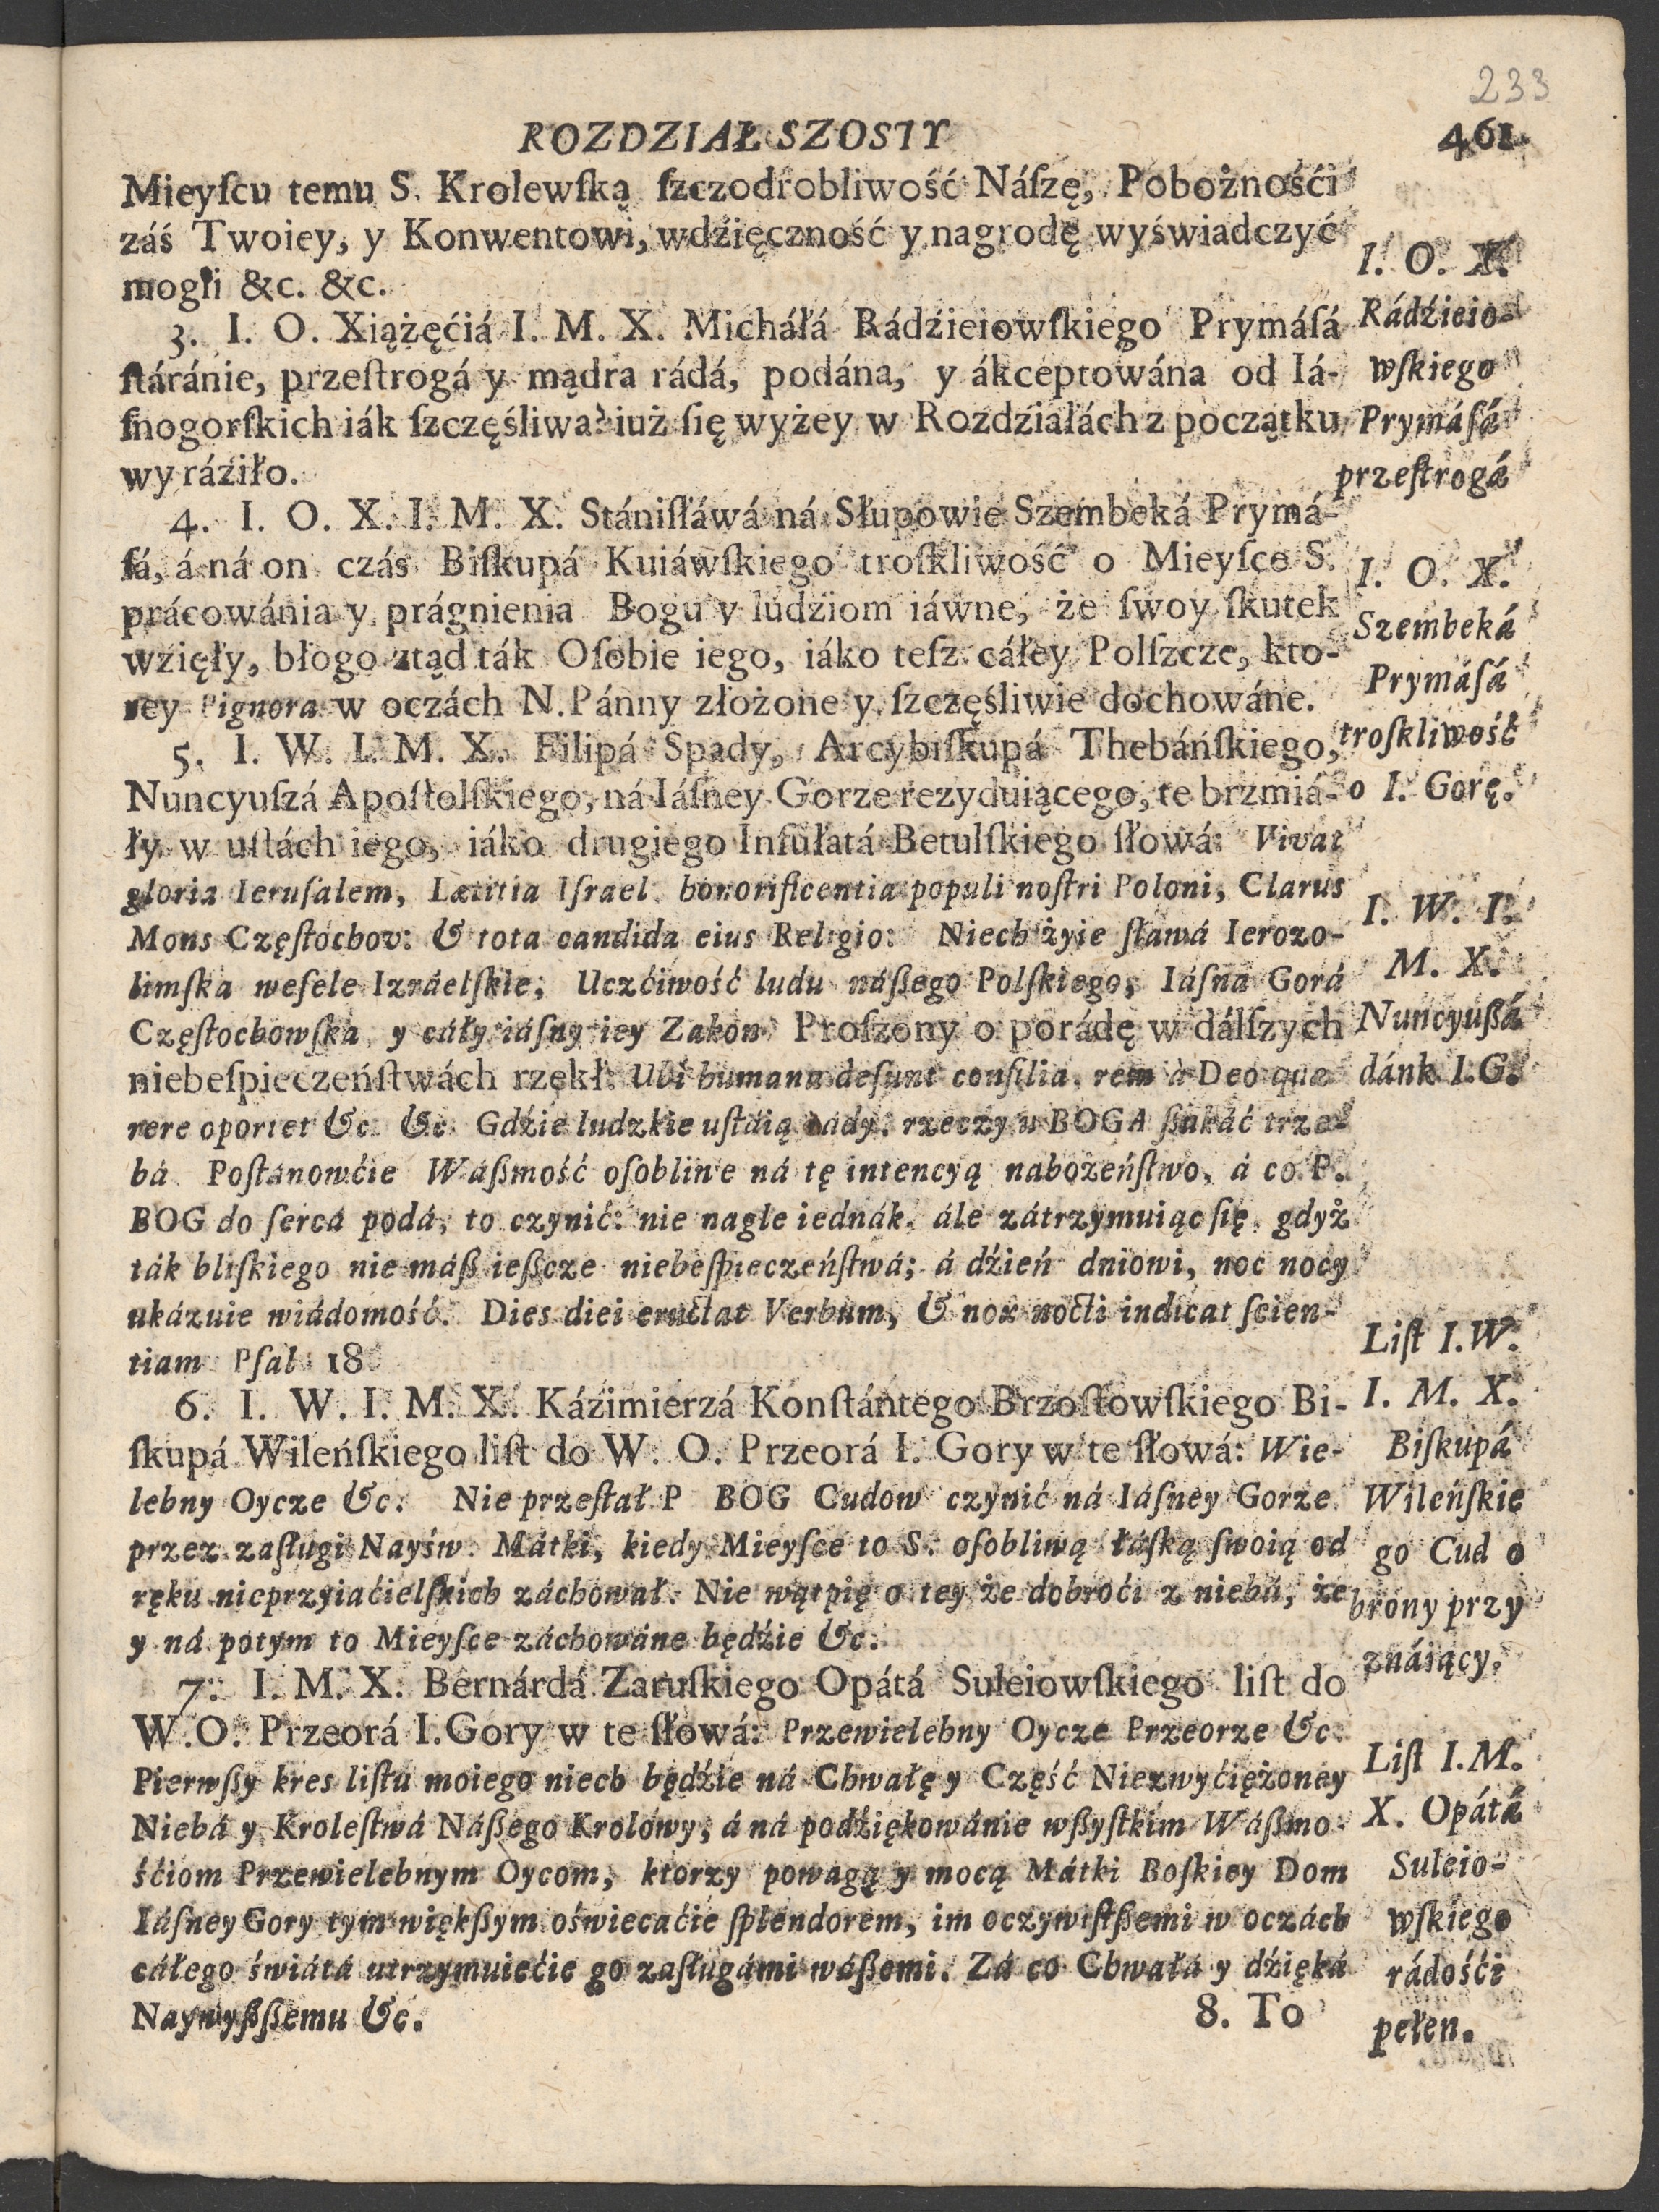 233
ROZDZIAŁ SZOSTY 461.
Mieyſcu temu S. Krolewſką ſzczodrobliwość Náſzę, Pobożnośći
záś Twoiey, y Konwentowi, wdźięczność y nagrodę wyświadczyć
mogli &c. &c.
3. I. O. Xiążęćiá I. M. X. Micháłá Rádźieiowſkiego Prymáſá
ſtáránie, przeſtrogá y mądra rádá, podána, y ákceptowána od Iá-
ſnogorſkich iák ſzczęśliwa? iuż ſię wyżey w Rozdziałách z początku
wyráźiło.
4. I. O. X. I. M. X. Stániſłáwá ná Słupowie Szembeká Prymá-
ſá, á ná on czás Biſkupá Kuiáwſkiego troſkliwość o Mieyſce S.
prácowánia y prágnienia Bogu y ludziom iáwne, że ſwoy ſkutek
wzięły, błogo ztąd ták Oſobie iego, iáko teſz cáłey Polſzcze, kto-
rey Pignora w oczách N. Pánny złożone y ſzczęśliwie dochowáne.
5. I. W. I. M. X. Filipá Spady, Arcybiſkupá Thebáńſkiego,
Nuncyuſzá Apoſtolſkiego, ná Iáſney Gorze rezyduiącego, te brzmiá-
ły w uſtách iego, iáko drugiego Inſułatá Betulſkiego ſłowá: Vivat
gloria Ieruſalem, Lætitia Iſrael, honorificentia populi noſtri Poloni, Clarus
Mons Częſtochov: & tota candida eius Religio: Niech żyie ſława Ierozo-
limſka weſele Izráelſkie, Uczćiwość ludu náßego Polſkiego, Iáſna Gorá
Częſtochowſka, y cáły iáſny iey Zakon. Proſzony o porádę w dálſzych
niebeſpieczeńſtwách rzekł: Ubi humana deſunt conſilia, rem à Deo quæ
rere oportet &c. &c. Gdźie ludzkie uſtáią rády, rzeczy u BOGA ßukáć trze-
bá. Poſtánowćie Wáßmość oſobliwe ná tę intencyą nabożeńſtwo, á co P.
BOG do ſercá podá, to czynić: nie nagle iednák, ále zátrzymuiąc ſię, gdyż
ták bliſkiego nie máß ießcze niebeſpieczeńſtwá; á dźień dniowi, noc nocy
ukázuie wiádomość. Dies diei eructat Verbum, & nox nocti indicat ſcien-
tiam Pſal 18
6. I. W. I. M. X. Káźimierzá Konſtántego Brzoſtowſkiego Bi-
ſkupá Wileńſkiego liſt do W. O. Przeorá I. Gory w te ſłowá: Wie-
lebny Oycze &c. Nie przeſtał P BOG Cudow czynić ná Iáſney Gorze
przez zaſługi Nayśw. Mátki, kiedy Mieyſce to S. oſobliwą łáſką ſwoią od
ręku nieprzyiaćielſkich záchował. Nie wątpię o tey że dobroći z niebá, że
y ná potym to Mieyſce záchowáne będźie &c.
7. I. M. X. Bernárdá Zaruſkiego Opátá Suleiowſkiego liſt do
W. O. Przeorá I. Gory w te ſłowá: Przewielebny Oycze Przeorze &c.
Pierwßy kres liſtu moiego niech będźie ná Chwałę y Część Niezwyćiężoney
Niebá y Kroleſtwá Náßego Krolowy, á ná podźiękowánie wßyſtkim Wáßmo-
śćiom Przewielebnym Oycom, ktorzy powagą y mocą Mátki Boſkiey Dom
Iáſney Gory tym więkßym oświecaćie ſplendorem, im oczywiſtßemi w oczách
cáłego świátá utrzymuiećie go zaſługámi wáßemi. Zá co Chwałá y dźięká
Naywyßßemu &c.
8. To
I. O. X.
Rádźieio-
wſkiego
Prymáſá
przeſtrogá
I. O. X.
Szembeká
Prymáſá
troſkliwość
o I. Gorę.
I. W. I.
M. X.
Nuncyußá
dánk I. G.
Liſt I. W.
I. M. X.
Biſkupá
Wileńſkie
go Cud o
brony przy
znáiący.
Liſt I. M.
X. Opátá
Suleio-
wſkiego
rádośći
pełen.